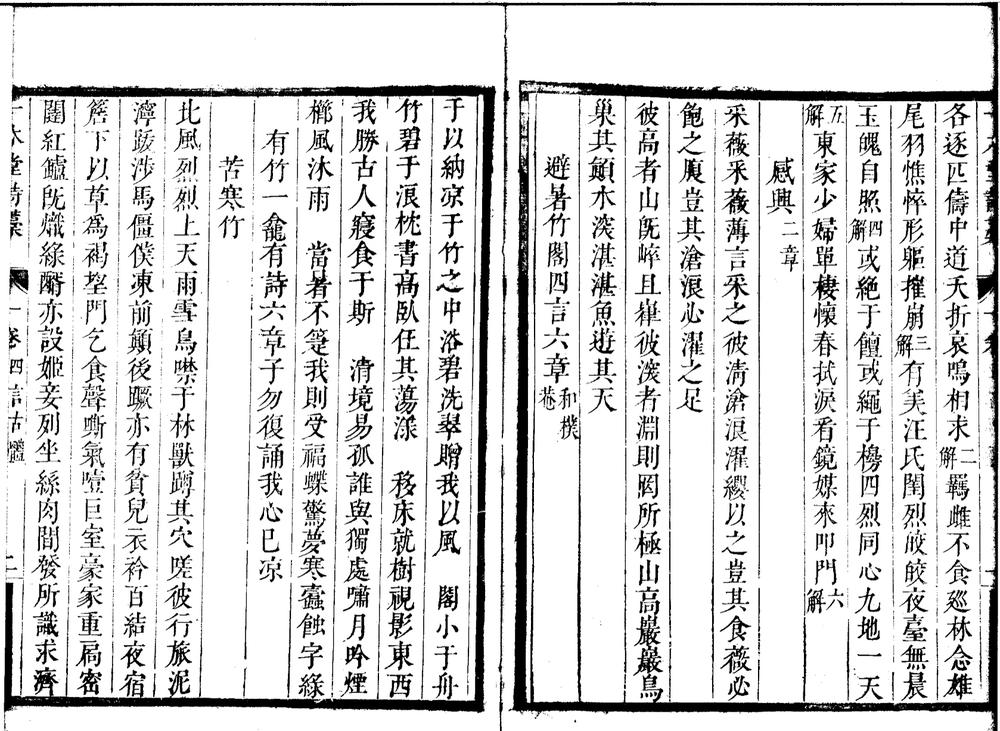 各逐匹儔中道夭折哀鳴相求二解羈雌不食廵林念雄
尾羽憔悴形軀摧崩三解有美汪氏閨烈皎皎夜臺無晨
玉魄自照四解或絕于饘或繩于榜四烈同心九地一天
五解東家少婦單棲懷春拭淚看鏡媒來叩門六解
感興二章
采薇采薇薄言采之彼淸滄浪濯纓以之豈其食薇必
飽之腹豈其滄浪心濯之足
彼高者山旣崒且嵂彼深者淵則罔所極山高巖巖鳥
巢其顚水深湛湛魚遊其天
避暑竹閣四言六章和樸菴
于以納凉于竹之中浴碧洗翠贈我以風　閣小于舟
竹碧于浪枕書高臥任其蕩漾　移床就樹視影東西
我勝古人寢食于斯　淸境易孤誰與獨處嘯月吟煙
櫛風沐雨　當暑不箑我則受福蝶驚夢寒蠧蝕字綠
有竹一龕有詩六章子勿復誦我心已凉
苦寒竹
北風烈烈上天雨雪鳥噤于林獸蹲其穴嗟彼行旅泥
濘跋涉馬僵僕凍前顚後蹶亦有貧兒衣衿百結夜宿
簷下以草爲褐塋門乞食聲嘶氣噎巨室豪家重扃密
闥紅鑪旣熾綠醑亦設姬妾列坐絲肉間發所識求濟
卷四言古
二